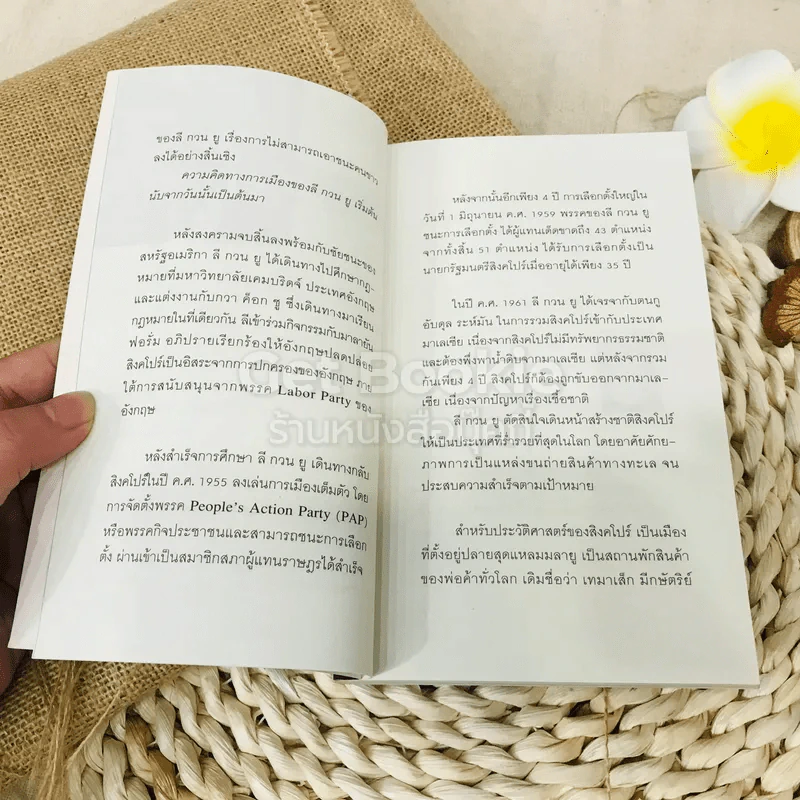 ของลี กวน ยู เรื่องการไม่สามารถเอาชนะคนขาว
ลงได้อย่างสิ้นเชิง
ความคิดทางการเมืองของลี กวน ยู เริ่มต้น
นับจากวันนั้นเป็นต้นมา
หลังสงครามจบสิ้นลงพร้อมกับชัยชนะของ
สหรัฐอเมริกา ลี กวน ยู ได้เดินทางไปศึกษากฎ-
หมายที่มหาวิทยาลัยเคมบริดจ์ ประเทศอังกฤษ
และแต่งงานกับกวา ค็อก ชู ซึ่งเดินทางมาเรียน
กฎหมายในที่เดียวกัน ลีเข้าร่วมกิจกรรมกับมาลายัน
ฟอรั่ม อภิปรายเรียกร้องให้อังกฤษปลดปล่อย
สิงคโปร์เป็นอิสระจากการปกครองของอังกฤษ ภาย
ใต้การสนับสนุนจากพรรค Labor Party ของ
อังกฤษ
หลังสำเร็จการศึกษา ลี กวน ยู เดินทางกลับ
สิงคโปร์ในปี ค.ศ. 1955 ลงเล่นการเมืองเต็มตัว โดย
การจัดตั้งพรรค People's Action Party (PAP)
หรือพรรคกิจประชาชนและสามารถชนะการเลือก
ตั้ง ผ่านเข้าเป็นสมาชิกสภาผู้แทนราษฎรได้สำเร็จ
หลังจากนั้นอีกเพียง 4 ปี การเลือกตั้งใหญ่ใน
วันที่ 1 มิถุนายน ค.ศ. 1959 พรรคของลี กวน ยู
ชนะการเลือกตั้ง ได้ผู้แทนเด็ดขาดถึง 43 ตำแหน่ง
จากทั้งสิ้น 51 ตำแหน่ง ได้รับการเลือกตั้งเป็น
นายกรัฐมนตรีสิงคโปร์เมื่ออายุได้เพียง 35 ปี
ในปี ค.ศ. 1961 ลี กวน ยู ได้เจรจากับตนกู
อับดุล ระห์มัน ในการรวมสิงคโปร์เข้ากับประเทศ
มาเลเซีย เนื่องจากสิงคโปร์ไม่มีทรัพยากรธรรมชาติ
และต้องพึ่งพาน้ำดิบจากมาเลเซีย แต่หลังจากรวม
กันเพียง 4 ปี สิงคโปร์ก็ต้องถูกขับออกจากมาเล-
เซีย เนื่องจากปัญหาเรื่องเชื้อชาติ
ลี กวน ยู ตัดสินใจเดินหน้าสร้างชาติสิงคโปร์
ให้เป็นประเทศที่ร่ำรวยที่สุดในโลก โดยอาศัยศักย-
ภาพการเป็นแหล่งขนถ่ายสินค้าทางทะเล จน
ประสบความสำเร็จตามเป้าหมาย
สำหรับประวัติศาสตร์ของสิงคโปร์ เป็นเมือง
ที่ตั้งอยู่ปลายสุดแหลมมลายู เป็นสถานพักสินค้า
ของพ่อค้าทั่วโลก เดิมชื่อว่า เทมาเส็ก มีกษัตริย์